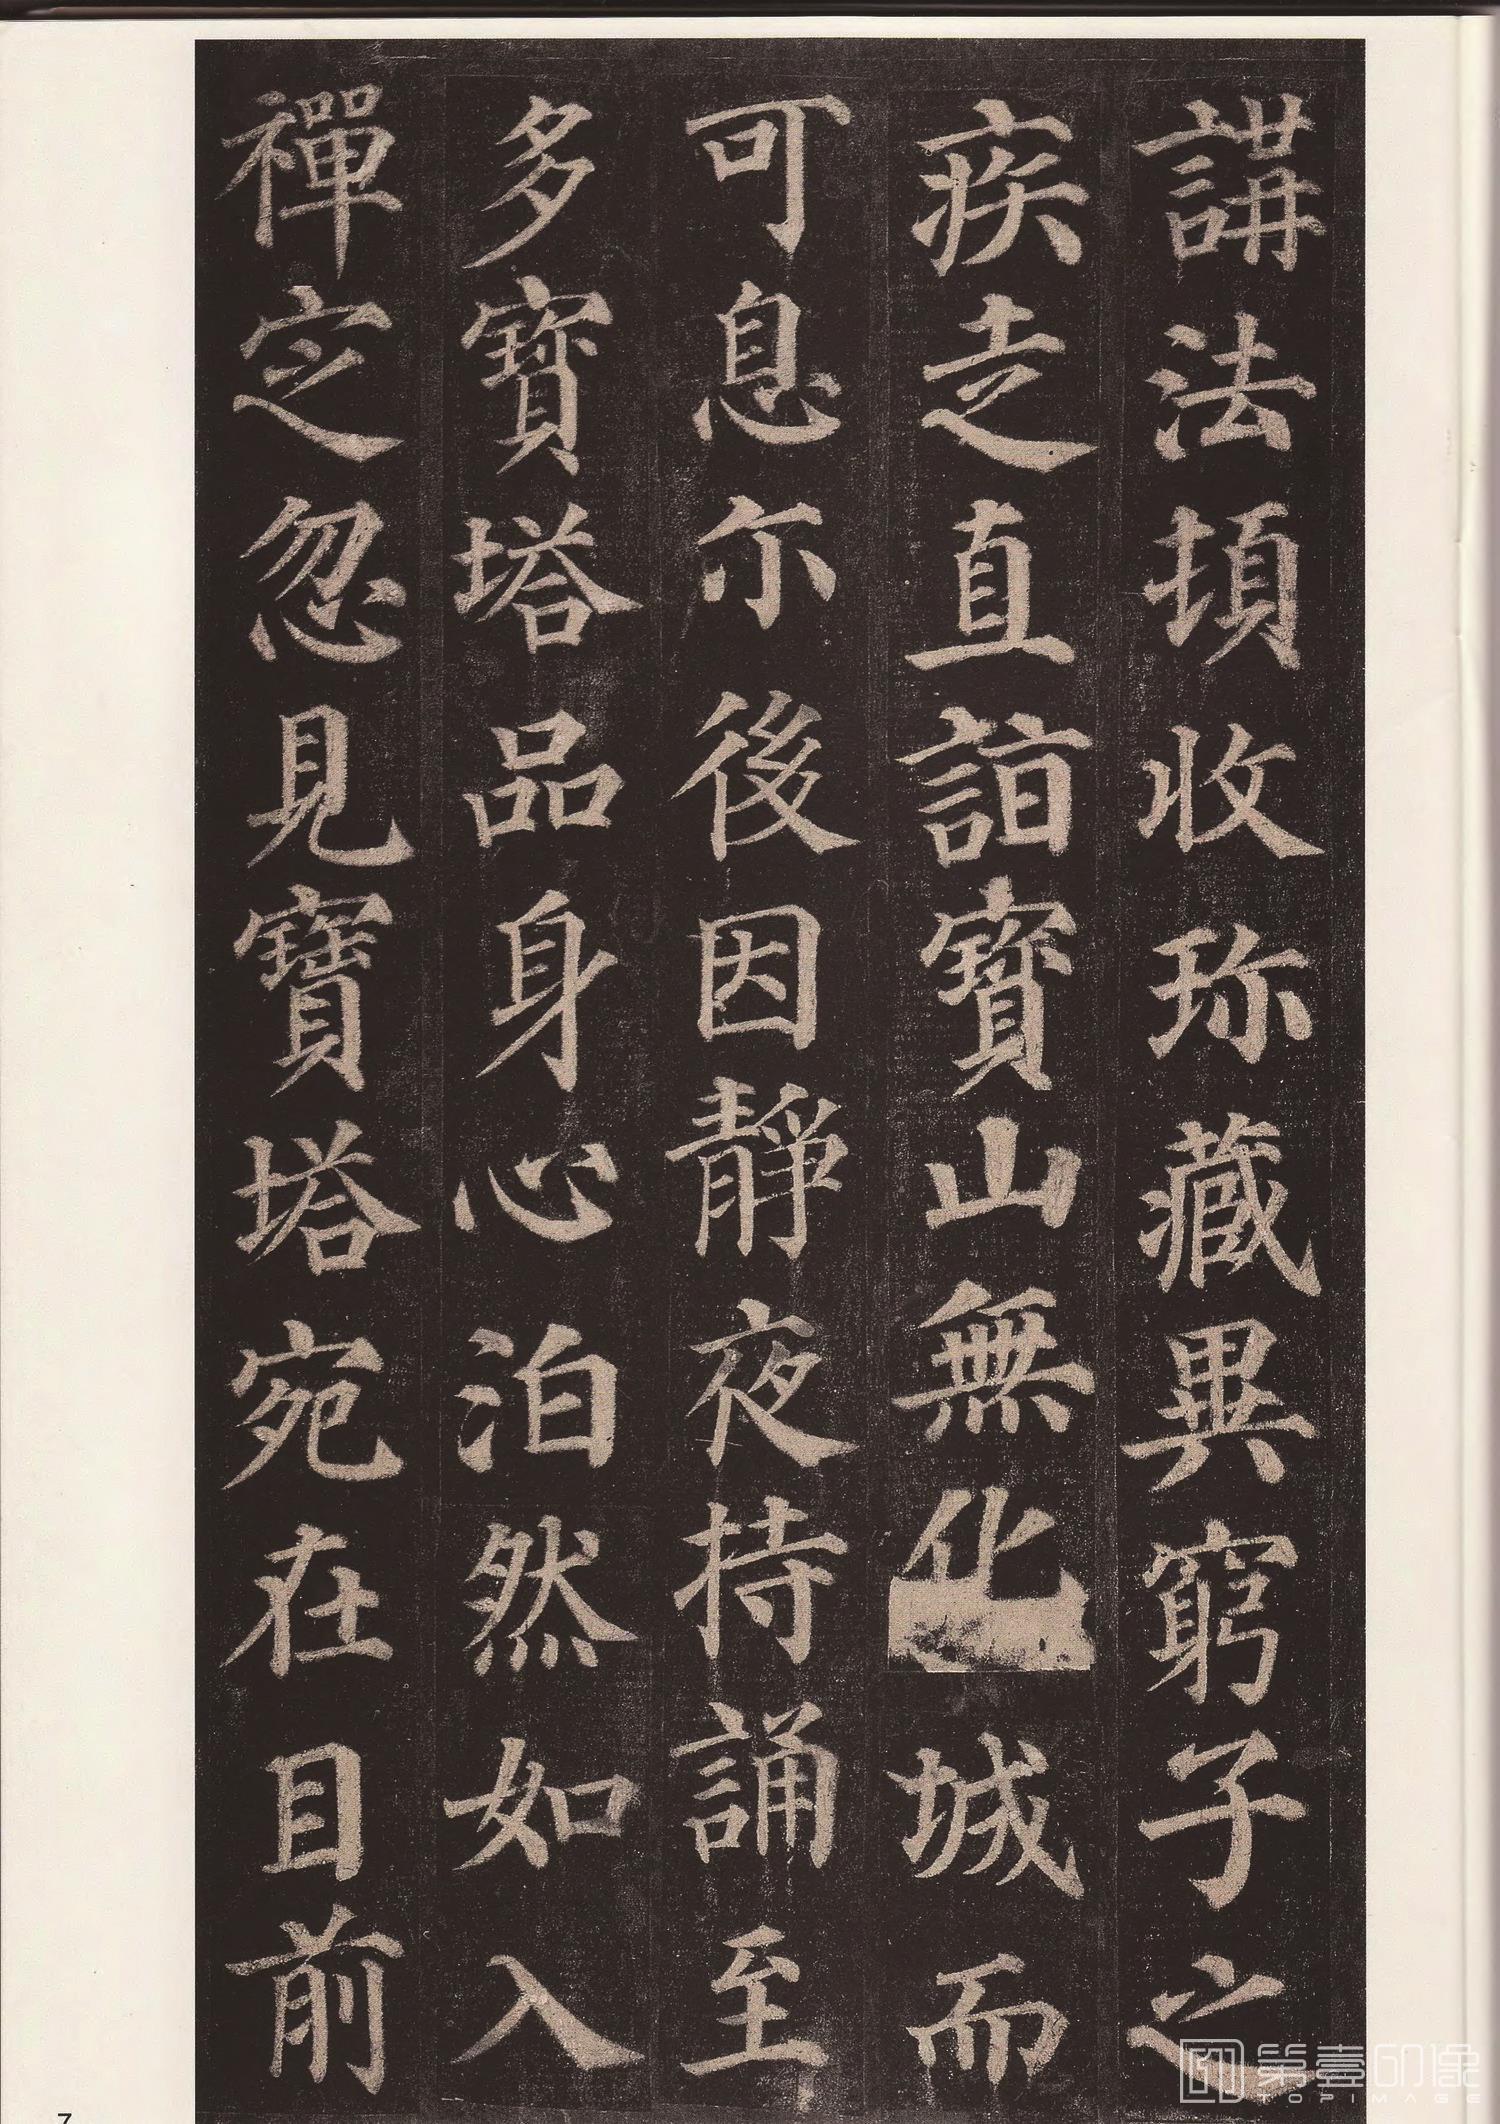 講法頓收珎藏異窮子之
疾走直詣寳山無化城而
可息尒後因静夜持誦至
多寳塔品身心泊然如入
禪定忽見寶塔宛在目前
第壹印像
TOPIMAGE
7